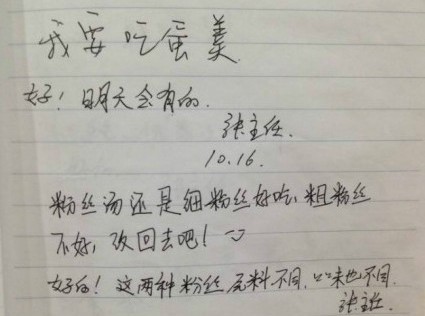 我要吃蛋羹
好！明天会有的.
张主任.
10.16.
粉丝汤还是细粉丝好吃,粗粉丝
不好,改回去吧！
好的！这两种粉丝原料不同,口味也不同.
张主任.